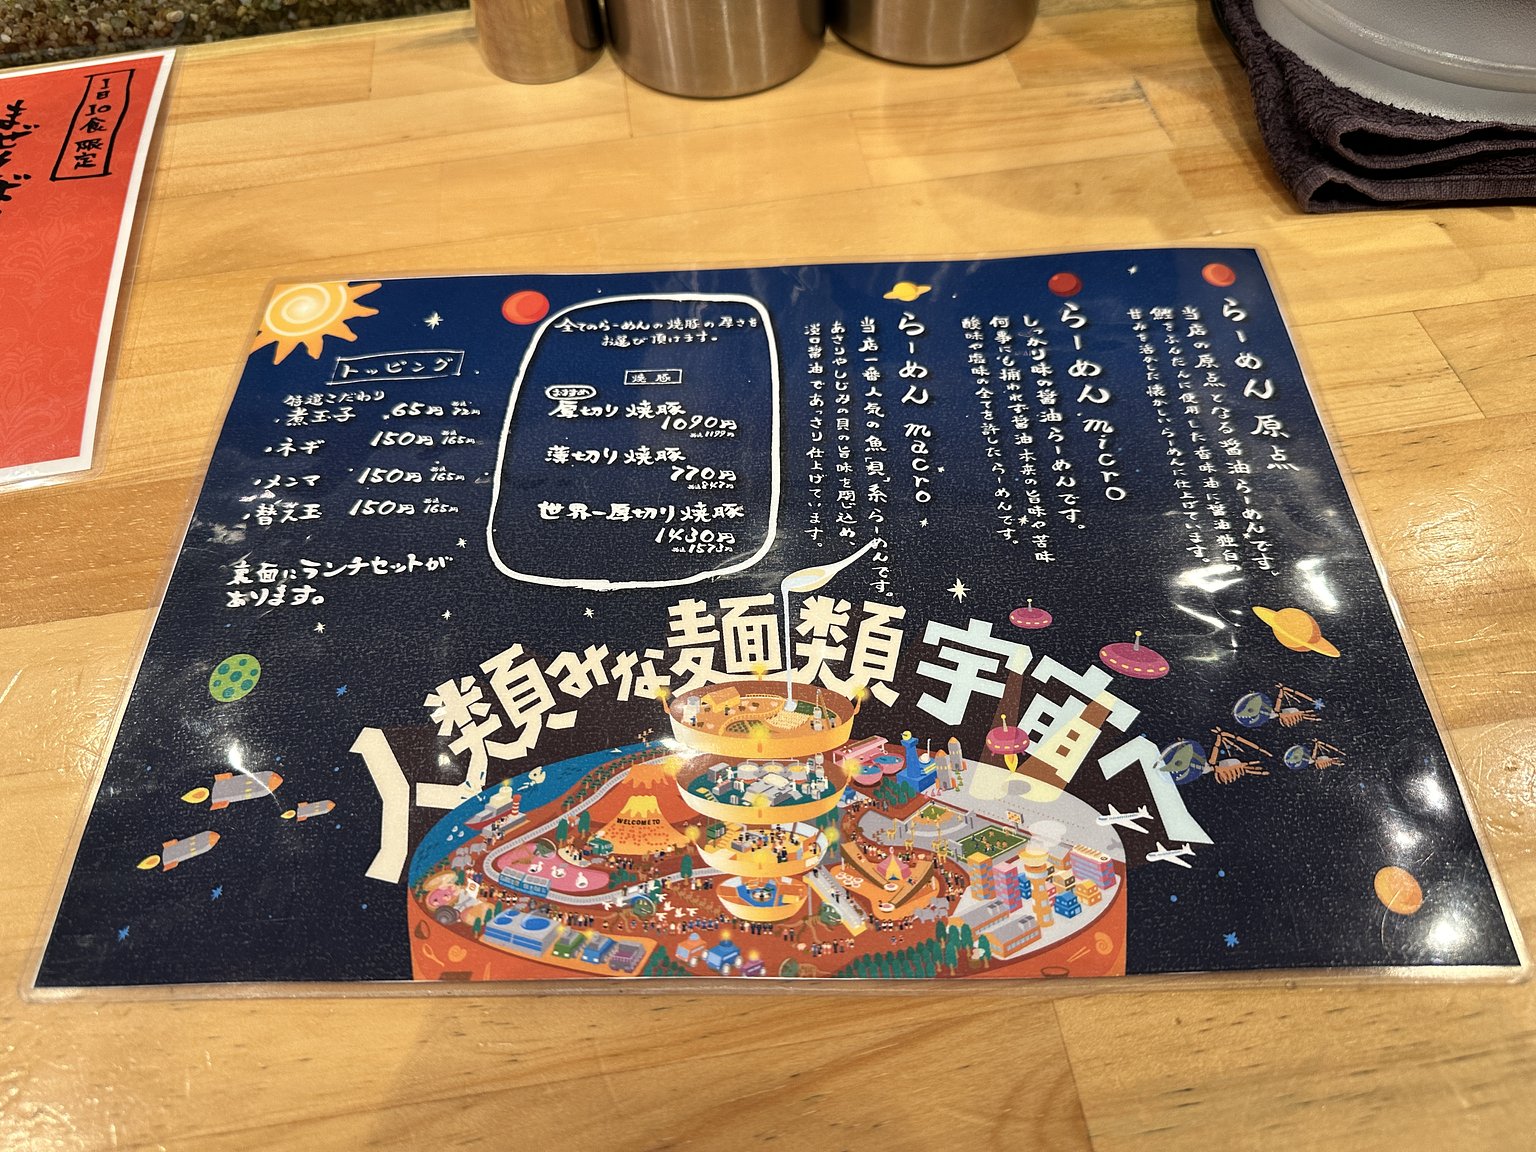 らーめん 原点
当店の原点となる醤油らーめんです。
鰹をふんだんに使用した香味油に醤油独自の
甘みを活かした懐かしいらーめんに仕上げています。
らーめん micro
しっかり味の醤油らーめんです。
何事にも捕われず醤油本来の旨味や苦味
酸味や塩味の全てを許したらーめんです。
らーめん macro
当店一番人気の魚「貝」系らーめんです。
あさりやしじみの貝の旨味を閉じ込め、
淡口醤油であっさり仕上げています。
全てのらーめんの焼豚の厚さを
お選び頂けます。
焼豚
おすすめ
厚切り焼豚
1090円
税込1199円
薄切り焼豚
770円
税込847円
世界一厚切り焼豚
1430円
税込1573円
トッピング
特選こだわり
・煮玉子 65円 税込72円
・ネギ 150円 税込165円
・メンマ 150円 税込165円
・替え玉 150円 税込165円
裏面にランチセットが
あります。
人類みな麺類宇宙へ
WELCOME TO
1日10食限定
まぜそば